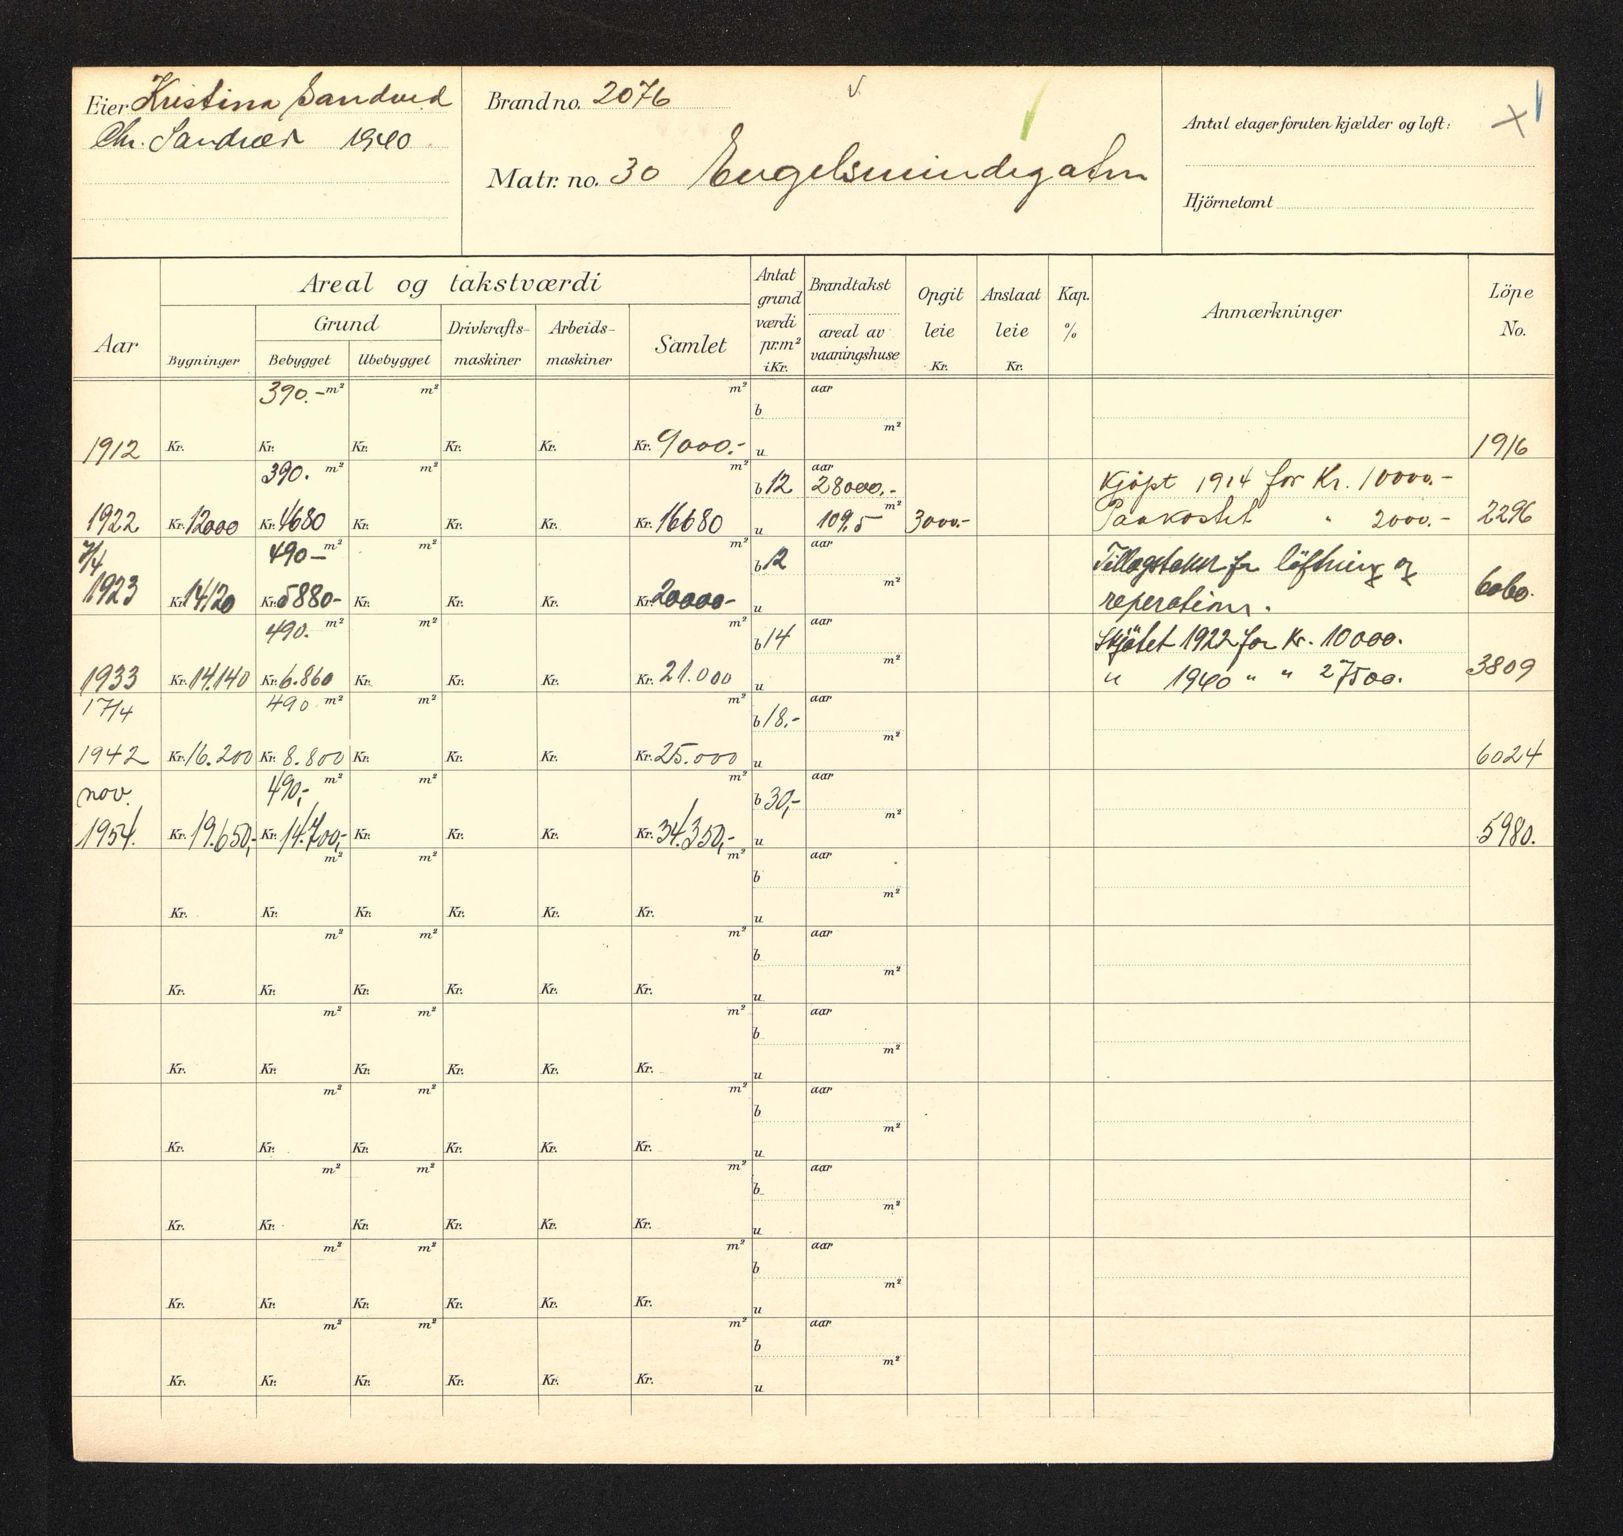 Eier Kristina Sandved
Chr. Sandved 1940
Brand no. 2076
Matr. no. 30 Engelsmindegaten
Antal etager foruten kjælder og loft:
Hjörnetomt
Aar
Areal og takstværdi
Bygninger
Grund
Bebygget Ubebygget
Drivkrafts-
maskiner
Arbeids-
maskiner
Samlet
Antat
grund
værdi
pr.m²
i Kr.
Brandtakst
areal av
vaaningshuse
Opgit
leie
Kr.
Anslaat
leie
Kr.
Kap.
%
Anmærkninger
Löpe
No.
390.- m² m² m² b aar
1912 Kr. Kr. Kr. Kr. Kr. Kr. 9000.- u m² 1916
390. m² m² m² b 12 aar 28000.- Kjøpt 1914 for Kr. 10000.-
1922 Kr. 12000 Kr. 4680 Kr. Kr. Kr. Kr. 16680 u 109.5 m² 3000.- Paakostet " 2000.- 2296
7/4 490- m² m² m² b 12 aar Tillægstakst for löftning og
1923 Kr. 14120 Kr. 5880- Kr. Kr. Kr. Kr. 20000- u m² reperationer. 6060.
490. m² m² m² b 14 aar Skjötet 1922 for Kr. 10000.
1933 Kr. 14.140 Kr. 6.860 Kr. Kr. Kr. Kr. 21.000 u m² " 1940 " " 27500. 3809
17/4 490 m² m² m² b 18.- aar
1942 Kr. 16.200 Kr. 8.800 Kr. Kr. Kr. Kr. 25.000 u m² 6024
nov. 490,- m² m² m² b 30,- aar
1954. Kr. 19.650,- Kr. 14.700,- Kr. Kr. Kr. Kr. 34.350,- u m² 5980.
m² m² m² b aar
Kr. Kr. Kr. Kr. Kr. Kr. u m²
m² m² m² b aar
Kr. Kr. Kr. Kr. Kr. Kr. u m²
m² m² m² b aar
Kr. Kr. Kr. Kr. Kr. Kr. u m²
m² m² m² b aar
Kr. Kr. Kr. Kr. Kr. Kr. u m²
m² m² m² b aar
Kr. Kr. Kr. Kr. Kr. Kr. u m²
m² m² m² b aar
Kr. Kr. Kr. Kr. Kr. Kr. u m²
m² m² m² b aar
Kr. Kr. Kr. Kr. Kr. Kr. u m²